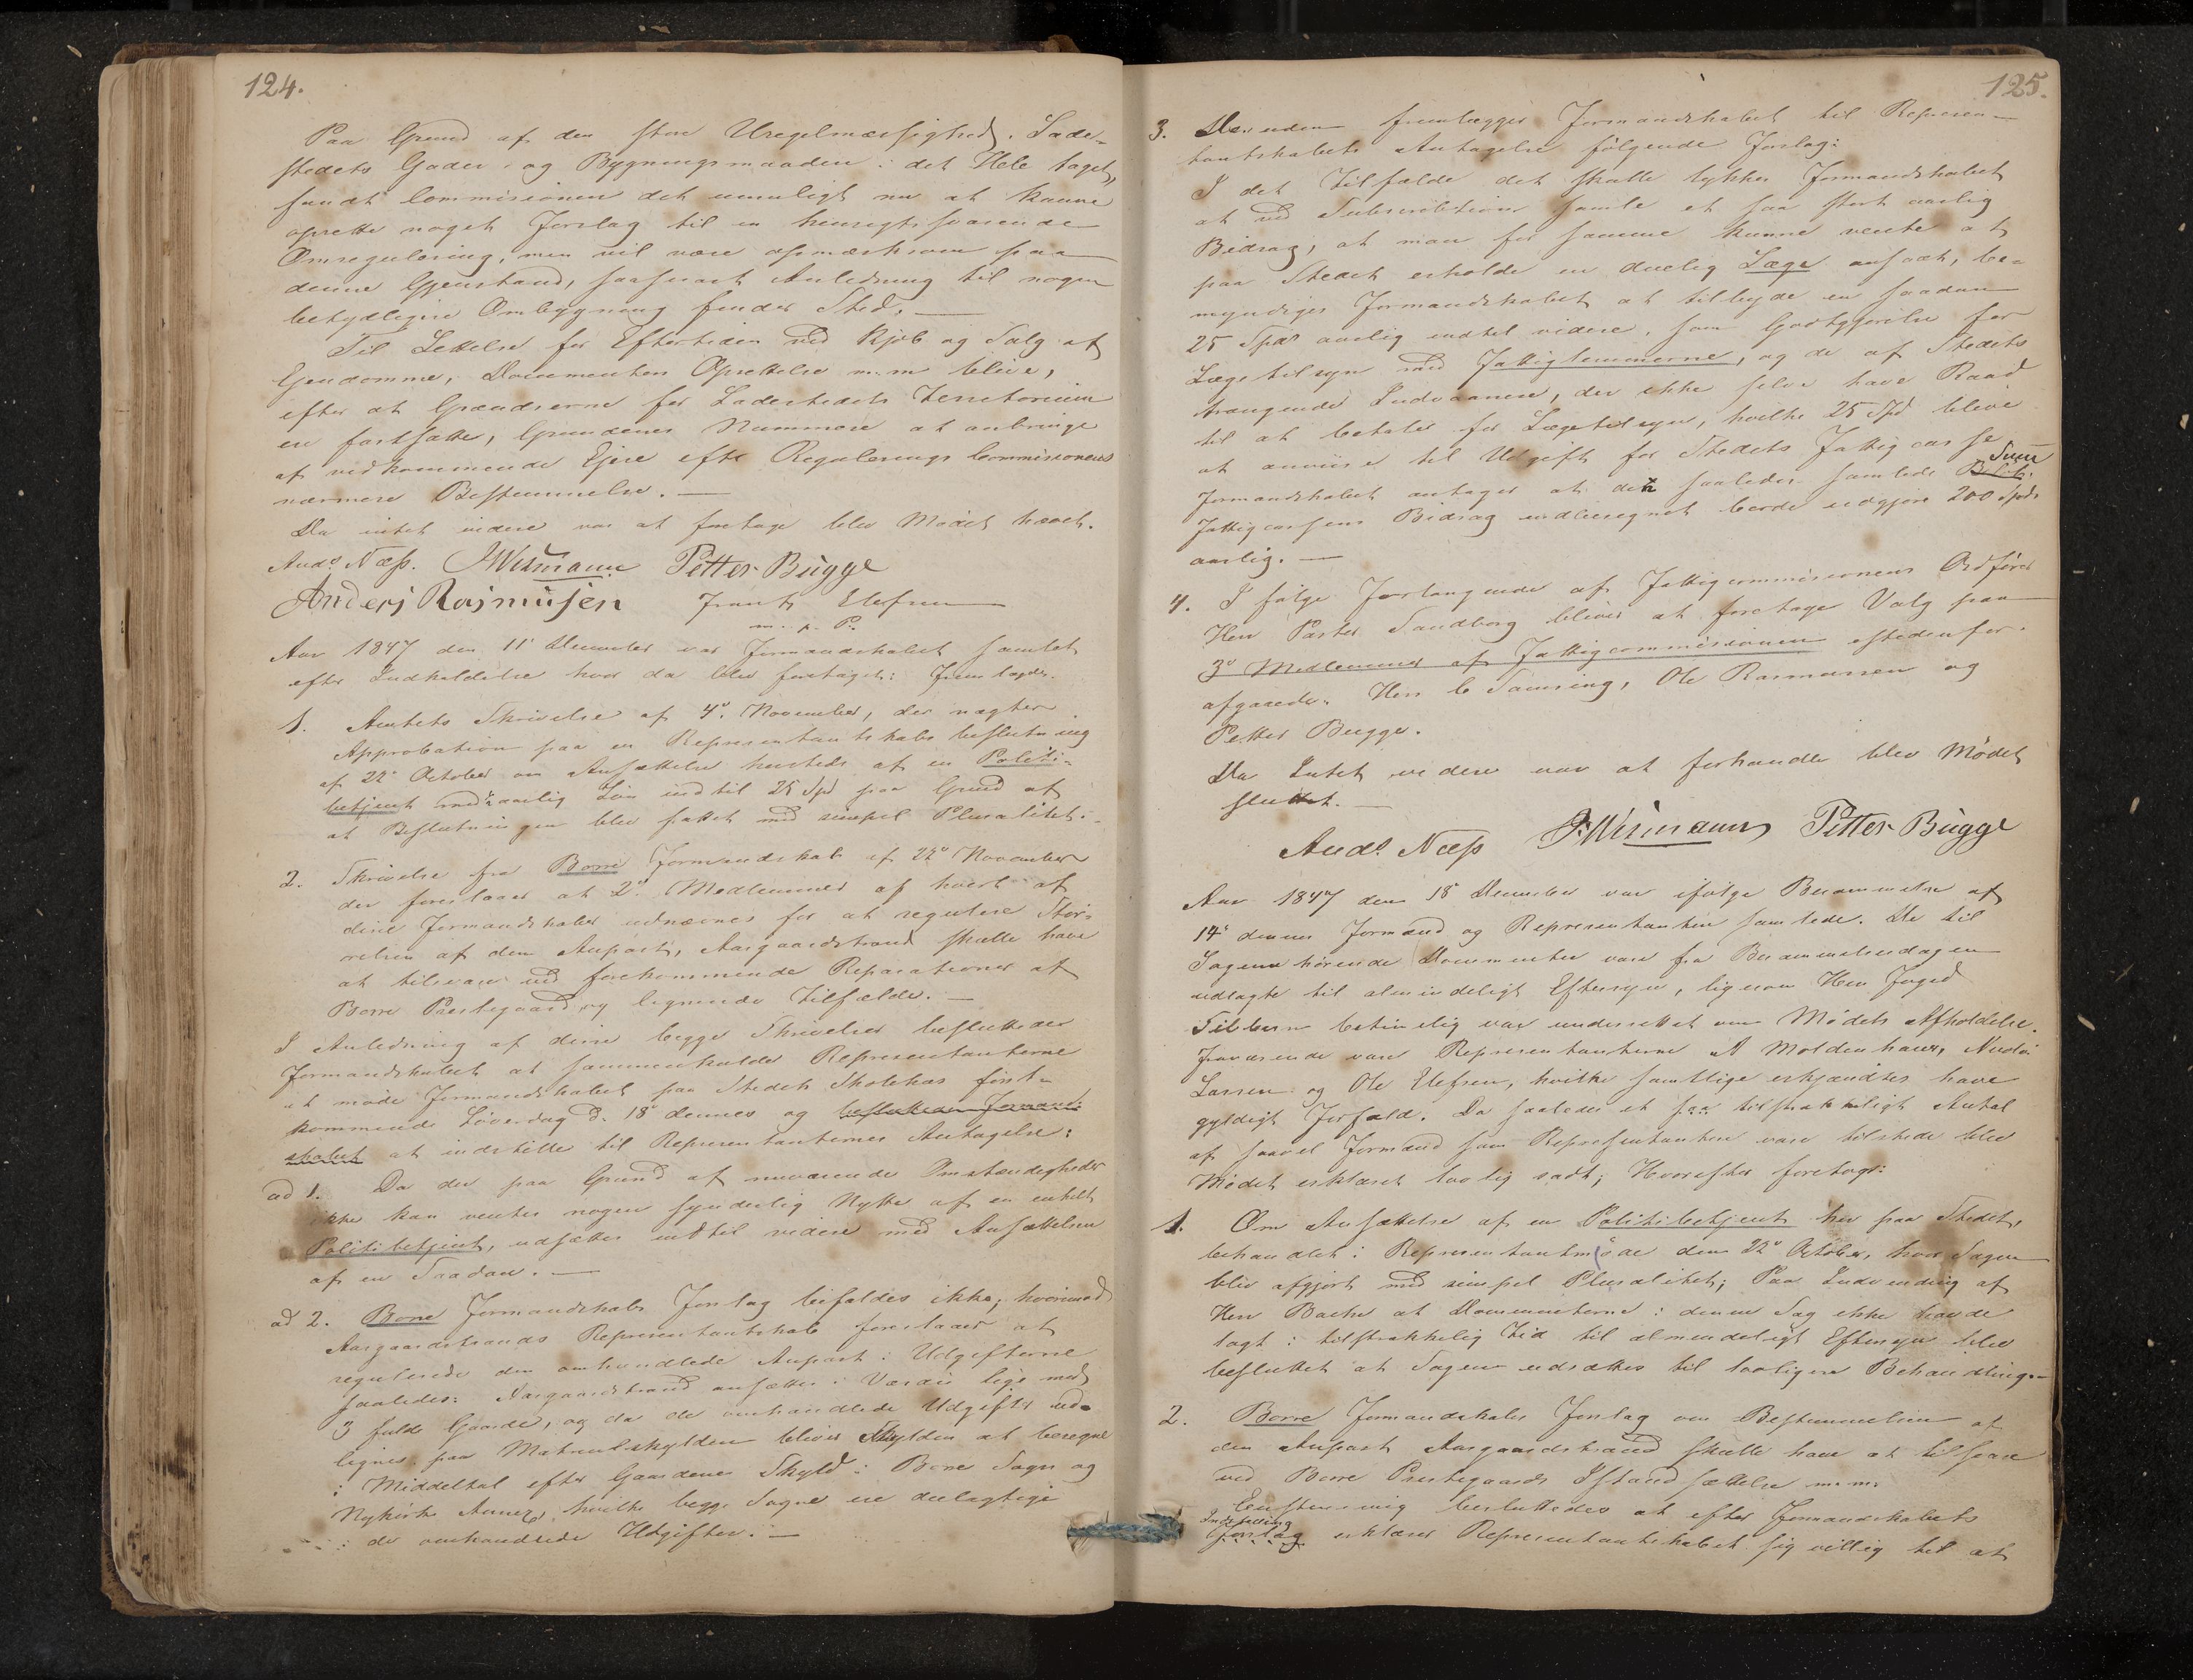 124.
Paa Grund af den store Uregelmæssighed i Lade-
stedets Gader og Bygningsmaaden i det Hele taget,
fandt Commisionen det umuligt nu at kunne
oprette noget Forslag til en hensigtssvarende
Omregulering, men vil være opmærksom paa
denne Gjenstand, saasnart Anledning til nogen
betydeligere Ombygning finder Sted. —
Til Lettelse for Eftertiden ved Kjöb og Salg af
Ejendomme, Documenters Oprettelse m.m. blive,
efter at Grændserne for Ladestedets Territorium
ere fastsatte, Grundenes Nummere at anbringe
af vedkommende Ejere efter Regulerings Commissionens
nærmere Bestemmelse. —
Da intet videre var at foretage blev Mödet hævet.
Ands Næss. J Wismann Petter Bugge
Anders Rasmusen Frants Elefsen
m. p. P.
Aar 1847 den 11te December var Formandskabet samlet
efter Indkaldelse hvor da blev foretaget: Fremlagdes
1. Amtets Skrivelse af 4de November, der nægter
Approbation paa en Representantskabs beslutning
af 22de October om Ansættelse hersteds af en Politi-
betjent med aarlig Lön indtil 25 Spd paa Grund af
at Beslutningen blev fattet med simpel Pluralitet. –
2. Skrivelse fra Borre Formandskab af 22de November
der foreslaaer at 2de Medlemmer af hvert af
disse Formandskaber udnævnes for at regulere Stör-
relsen af den Anpart, Aasgaardstrand skulle have
at tilsvare ved forekommende Reparationer af
Borre Præstegaard og lignende Tilfælde. —
I Anledning af disse begge Skrivelser besluttede
Formandskabet at sammenkalde Representanterne
at möde Formandskabet paa Stedets Skolehus först-
kommende Löverdag d. 18de dennes og besluttede Formand-
skabet at indstille til Representanternes Antagelse:
ad 1. Da der paa Grund af nuværende Omstændigheder
ikke kan ventes nogen synderlig Nytte af en enkelt
Politibetjent, udsættes indtil videre med Ansættelsen
af en Saadan. —
ad 2. Borre Formandskabs Forslag bifaldes ikke, hvorimod
Aasgaardstrands Representantskab foreslaaer at
regulerede den omhandlede Anpart i Udgifterne
saaledes: Aasgaardstrand ansættes i Værdie lige med
3 fulde Gaarde, og da de omhandlede Udgifter ud-
lignes paa Matriculskylden bliver Skylden at beregne
i Middeltal efter Gaardenes Skyld i Borre Sogn og
Nykirke Annex, hvilke begge Sogne ere deelagtige
i de omhandlede Udgifter. —
125.
3. Desuden fremlægges Formandskabet til Represen-
tantskabets Antagelse fölgende Forslag:
I det Tilfælde det skulle lykkes Formandskabet
at ved Subscribtion samle et saa stort aarlig
Bidrag, at man for samme kunne vente at
paa Stedet erholde en duelig Læge ansat, be-
myndiges Formandskabet at tilbyde en saadan
25 Spd aarlig indtil videre, som Godtgjörelse for
Lægetilsyn med Fattiglemmerne, og de af Stedets
trængende Indvaanere, der ikke selv have Raad
til at betale for Lægetilsyn, hvilke 25 Spd bliver
at anvise til Udgift for Stedets Fattigcasse
Sum
Formandskabet antager at den saaledes samlede Belöb
Fattigcassens Bidrag indberegnet burde udgjöre 200 Spds
aarlig. —
4. I fölge Forlangende af Fattigcommissionens Ordförer
Herr Pastor Sandborg bliver at foretage Valg paa
3de Medlemmer af Fattigcommisionen istedenfor
afgaaede. Herr C Samsing, Ole Rasmussen og
Petter Bugge.
Da Intet videre var at forhandle blev Mödet
sluttet. —
Ands Næss J. Wismann Petter Bugge
Aar 1847 den 18de December var ifölge Berammelse af
14de dennes Formænd og Representanten samlede. De til
Sagerne hörende Documenter vare fra Berammelsesdagen
udlagte til almindeligt Eftersyn, ligesom Herr Foged
betimelig var underrettet om Mödets Afholdelse.
Fraværende vare Representanterne A Moldenhauer,
Larsen og Ole Elefsen, hvilke samtlige erkjendtes have
gyldigt Forfald. Da saaledes et saa tilstrækkeligt Antal
af saavel Formænd som Representanter vare tilstede blev
Mödet erklæret lovlig sadt; Hvorefter foretoges:
1. Om Ansættelse af en Politibetjent her paa Stedet,
behandlet i Representantmöde den 22de October, hvor Sagen
blev afgjort med simpel Pluralitet; Paa Indvending af
Herr Bache at Documenterne i denne Sag ikke havde
lagt i tilstrækkelig Tid til almindeligt Eftersyn blev
besluttet at Sagen udsættes til lovligere Behandling. –
2. Borre Formandskabs Forslag om Bestemmelsen af
den Anpart Aasgaardstrand skulle have at tilsvare
ved Borre Præstegaards Istandsættelse m.m.
Eenstemmig besluttedes at efter Formandskabets
Indstilling
Forslag erklærer Representantskabet sig villig til at